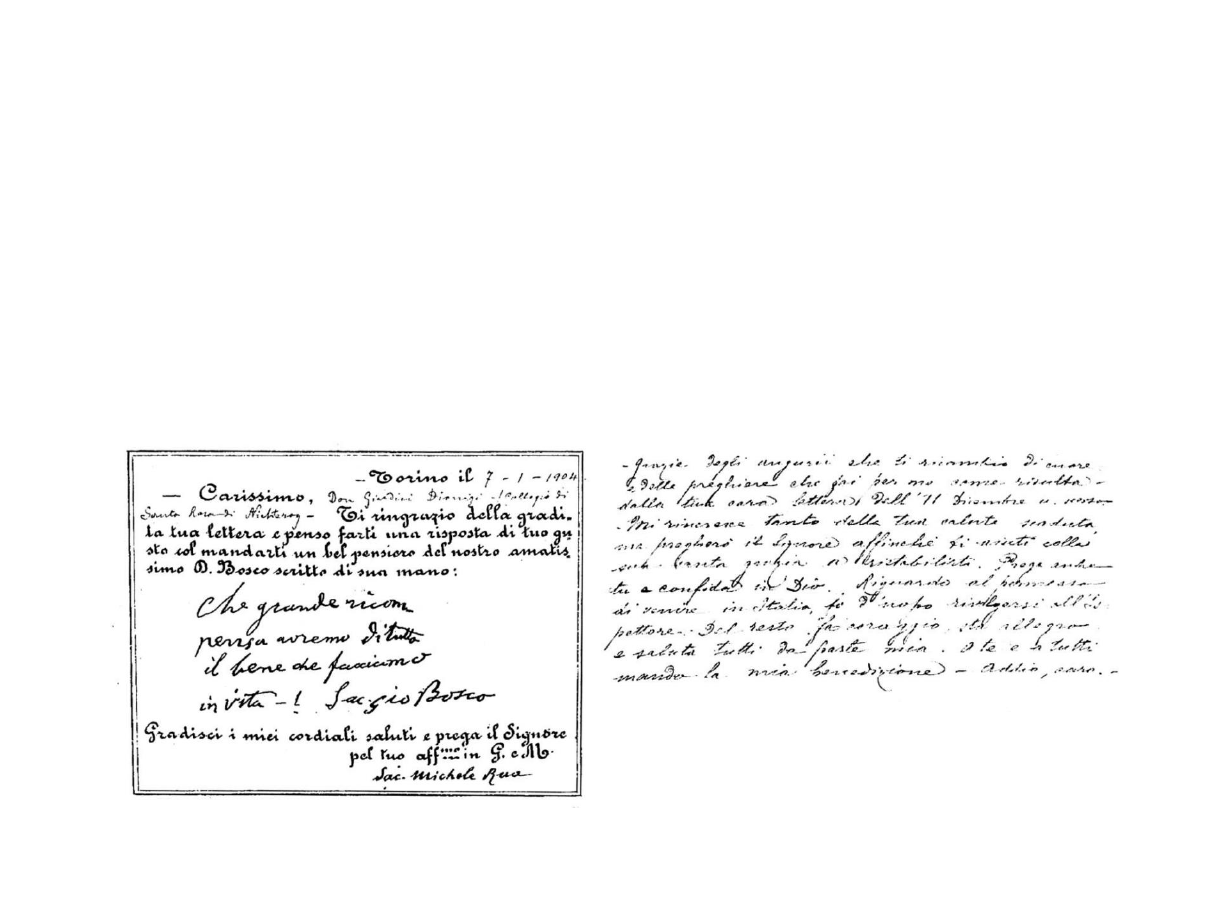 – Torino il 7 - 1 - 1904
— Carissimo, Don Giudici Dionigi - Collegio di
Santa Rosa di Nichteroy – Ti ringrazio della gradi-
ta tua lettera e penso farti una risposta di tuo gu
sto col mandarti un bel pensiero del nostro amatis
simo D. Bosco scritto di sua mano:
Che grande ricom
pensa avremo di tutto
il bene che facciamo
in vita – ! Sac gio Bosco
Gradisci i miei cordiali saluti e prega il Signore
pel tuo aff.mo in G. e M.
Sac. Michele Rua
- Grazie degli augurii che ti ricambio di cuore
e delle preghiere che fai per me come risulta -
dalla tua cara lettera dell' 11 Dicembre u. scorso
- Mi rincresce tanto della tua salute scaduta
ma pregherò il Signore affinchè ti aiuti colla
sua santa grazia a ristabilirti. Prega anche
tu e confida in Dio. Riguardo al permesso
di venire in Italia, fo d'uopo rivolgersi all'Is-
pettore. Del resto fa coraggio, sta allegro
e saluta tutti da parte mia. A te e a tutti
mando la mia benedizione – Addio, caro. -